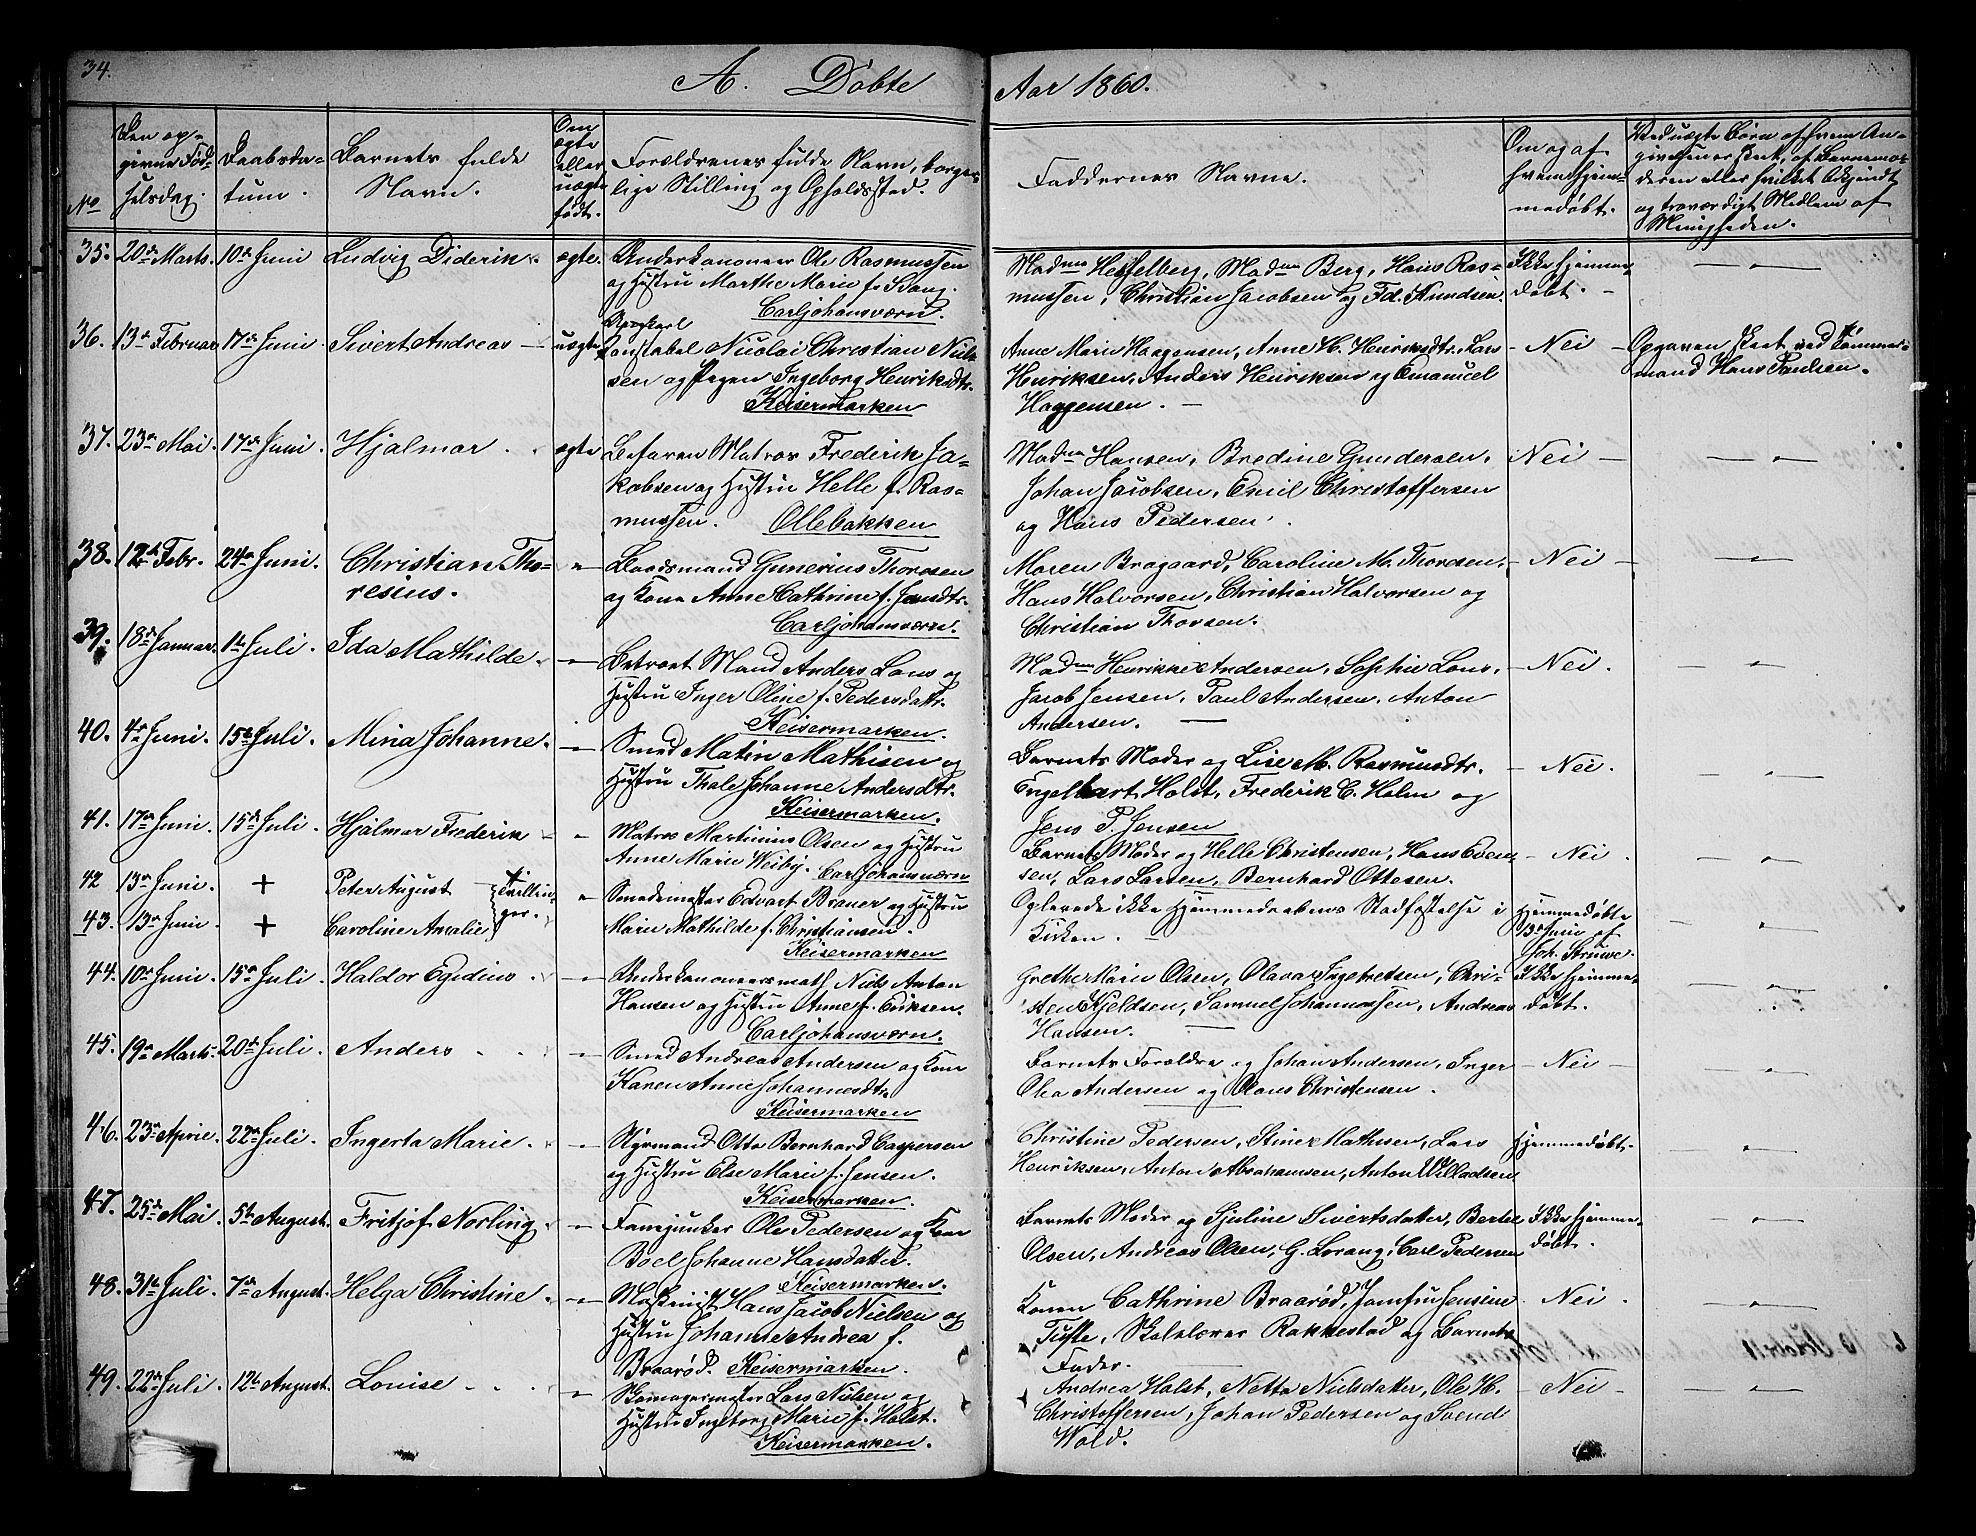 34.
A. Døbte
Aar 1860.
No
Den op-
givne Fød-
selsdag.
Daabsda-
tum.
Barnets fulde
Navn.
Om
ægte
eller
uægte
født.
Forældrenes fulde Navn, borger-
lige Stilling og Opholdssted.
Faddernes Navne.
Om og af
hvem hjem-
medøbt.
Ved uægte Børn af hvem An-
givelsen er skeet, af Barnemo-
deren eller hvilket bekjendt
og troværdigt Medlem af
Menigheden.
35. 20de Marts. 10de Juni Ludvig Diderik. ægte. Underkanoneer Ole Rasmussen
og Hustru Marthe Marie f. Stang.
Carljohansværn.
Madme Hesselberg, Madme Berg, Hans Ras-
mussen, Christian Jacobsen og Fd. Knudsen.
Ikke hjemme-
døbt. —
36. 13de Februar 17de Juni. Sivert Andreas — uægte
Ungkarl
Konstabel Nicolai Christian Niel-
sen og Pigen Ingeborg Henriksdtr.
Keisermarken
Anne Marie Haagensen, Anne H. Henriksdtr. Lars
Henriksen, Anders Henriksen og Emanuel
Haagensen. —
— Nei — Opgaven skeet ved Tømmer-
mand Hans Paulsen.
37. 23de Mai. 17de Juni. Hjalmar. ægte Befaren Matros Frederik Ja-
kobsen og Hustru Helle f. Ras-
mussen. Ollebakken
Madme Hansen, Bredine Gundersen,
Johan Jacobsen, Emil Christoffersen
og Hans Pedersen.
Nei —
38. 12te Febr. 24de Juni. Christian Tho-
resius. — Baadsmand Gunerius Thoresen
og Kone Anne Cathrine f. Jensdtr.
Carljohansværn.
Maren Bragaard, Caroline M. Thoresen,
Hans Halvorsen, Christian Halvorsen og
Christian Thorsen.
— Nei —
39. 18de Januar. 1ste Juli. Ida Mathilde. — Betroet Mand Anders Lans og
Hustru Inger Oline f. Pedersdatr.
Keisermarken.
Madme Henrikke Andersen, Sophie Lans,
Jacob Jensen, Paul Andersen, Anton
Andersen. —
— Nei.
40. 4de Juni. 15de Juli. Mina Johanne. — Smed Matin Mathisen og
Hustru Thale Johanne Andersdtr.
Keisermarken.
Barnets Moder og Lise M. Rasmusdtr.
Engelbart Holst, Frederik C. Holm og
Jens P. Jensen
— Nei.
41. 17de Juni. 15de Juli. Hjalmar Frederik — Matros Martinius Olsen og Hustru
Anne Marie Wiby. Carljohansværn
Barnets Moder og Helle Christensen, Hans Even-
sen, Lars Larsen, Bernhard Ottesen.
— Nei.
42 13de Juni. + Peter August
43. 13de Juni + Caroline Amalie
+
Tvillin-
ger.
— Smedemester Edvart Brauer og Hustru
Marie Mathilde f. Christiansen
Keisermarken
Oplevede ikke Hjemmedaabens Stadfæstelse i
Kirken. —
Hjemmedøbte
13de Juni af
Joh. Struwe.
44. 10de Juni. 15de Juli. Haldor Egidius — Underkanoneersmath Niels Anton
Hansen og Hustru Anne f. Eriksen.
Carljohansværn.
Grethe Marie Olsen, Olava Ingebretsen, Chri-
sten Kjeldsen, Samuel Johannessen, Andreas
Hansen. —
Ikke hjemme-
døbt.
45. 19de Marts. 20de Juli. Anders — Smed Andreas Andersen og Kone
Karen Anne Johannesdtr.
Keisermarken
Barnets Forældre og Johan Andersen, Inger
Olea Andersen og Claus Christensen.
— Nei —
46. 23de April. 22de Juli. Ingerta Marie. — Styrmand Otto Bernhard Caspersen
og Hustru Else Marie f. Jensen.
Keisermarken.
Christine Pedersen, Stine Mathisen, Lars
Henriksen, Anton Abrahamsen, Anton Willadsen
Hjemmedøbt.
47. 25de Mai. 5te August. Fritjof Norling — Fanejunker Ole Pedersen og Kone
Boel Johanne Hansdatter.
Keisermarken.
Barnets Moder og Gjuline Sivertsdatter, Bertel
Olsen, Andreas Olsen, G. Lorang, Carl Pedersen
Ikke hjemme-
døbt.
48. 31te Juli. 7de August. Helga Christine. — Maskinist Hans Jacob Nielsen og
Hustru Johanne Andrea f.
Braarød. Keisermarken.
Konen Cathrine Braarød, Jomfru Jensine
Tufte, Skolelærer Rakkestad og Barnets
Fader.
— Nei.
49. 22de Juli. 12te August. Louise — Skomagermester Lars Nielsen og
Hustru Ingeborg Marie f. Holst.
Keisermarken.
Andrea Holst, Netta Nielsdatter, Ole H.
Christoffersen, Johan Pedersen og Svend
Wold.
— Nei —